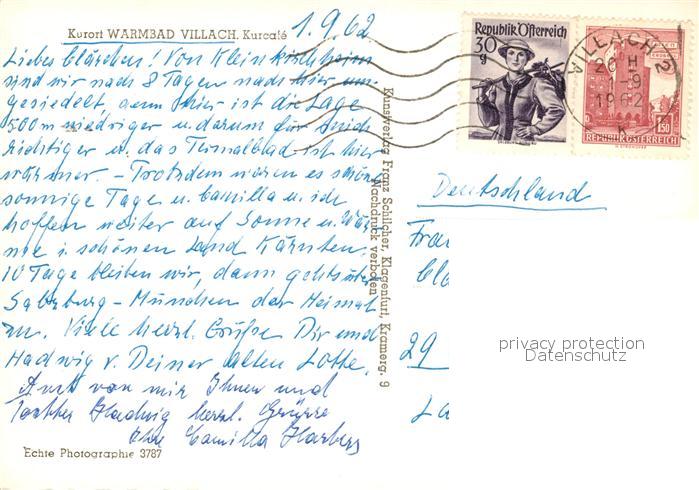 1.9.62
Kurort WARMBAD VILLACH, Kurcafé
Liebes Clärchen! Von Kleinkirchheim
sind wir nach 8 Tagen nach hier um-
gesiedelt, denn hier ist die Lage
500m niedriger u. darum für mich
richtiger u. das Termalbad ist hier
wärmer. – Trotzdem waren es schöne
sonnige Tage u. Camilla u. ich
hoffen weiter auf Sonne u. Wär-
me i. schönen Land Kärnten.
10 Tage bleiben wir, dann gehts über
Salzburg – München der Heimat
zu. Viele herzl. Grüße Dir und
Hadwig v. Deiner alten Lotte.
Auch von mir Ihnen und
Tochter Hadwig herzl. Grüsse
Ihre Camilla
Echte Photographie 3787
Kunstverlag Franz Schilcher, Klagenfurt, Kramerg. 9
Nachdruck verboten
Republik Österreich
30
g
VILLACH 2
1962
1.50
REPUBLIK ÖSTERREICH
Deutschland
Frau
Cla
29
privacy protection
Datenschutz